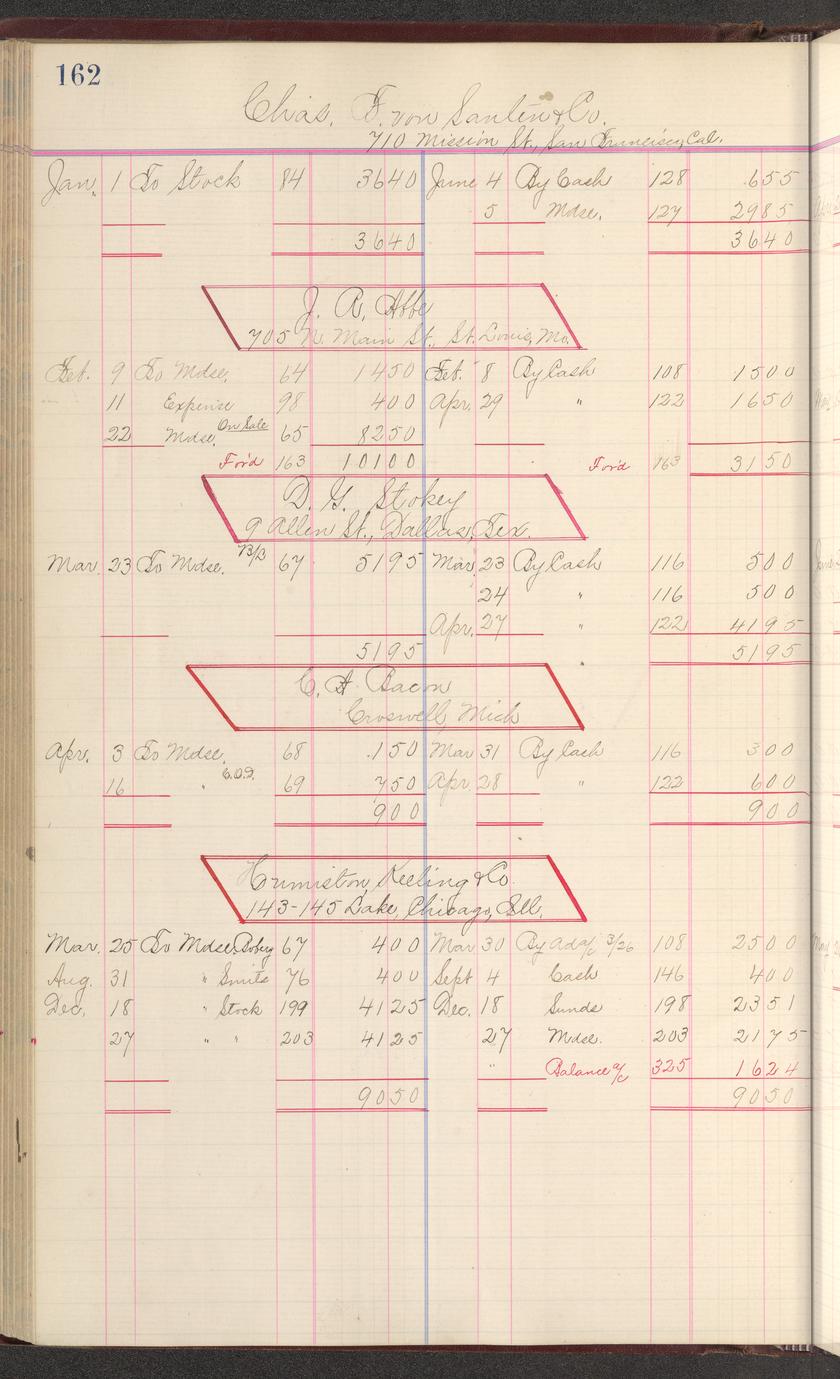 162
Chas. F. von Santen & Co.
710 Mission St., San Francisco, Cal.
Jan. 1 To Stock 84 3640 June 4 By Cash 128 655
5 Mdse. 127 2985
3640 3640
J. R. Abbe
705 N. Main St., St. Louis, Mo.
Feb. 9 To Mdse. 64 1450 Feb. 8 By Cash 108 1500
11 Expense 98 400 Apr. 29 " 122 1650
22 Mdse. On Sale 65 8250
For'd 163 10100 For'd 163 3150
D. G. Stokey
9 Allen St., Dallas, Tex.
Mar. 23 To Mdse. 67 5195 Mar. 23 By Cash 116 500
24 " 116 500
Apr. 27 " 122 4195
5195 5195
C. A. Bacon
Croswell, Mich
Apr. 3 To Mdse. 68 150 Mar 31 By Cash 116 300
16 " C.O.D. 69 750 Apr. 28 " 122 600
900 900
Humiston, Keeling & Co.
143-145 Lake, Chicago, Ill.
Mar. 25 To Mdse. 67 400 Mar 30 By Ad a/c 3/26 108 2500
Aug. 31 " Smits 76 400 Sept 4 Cash 146 400
Dec. 18 " Stock 199 4125 Dec. 18 Sunds 198 2351
27 " " 203 4125 27 Mdse. 203 2175
" Balance a/c 325 1624
9050 9050